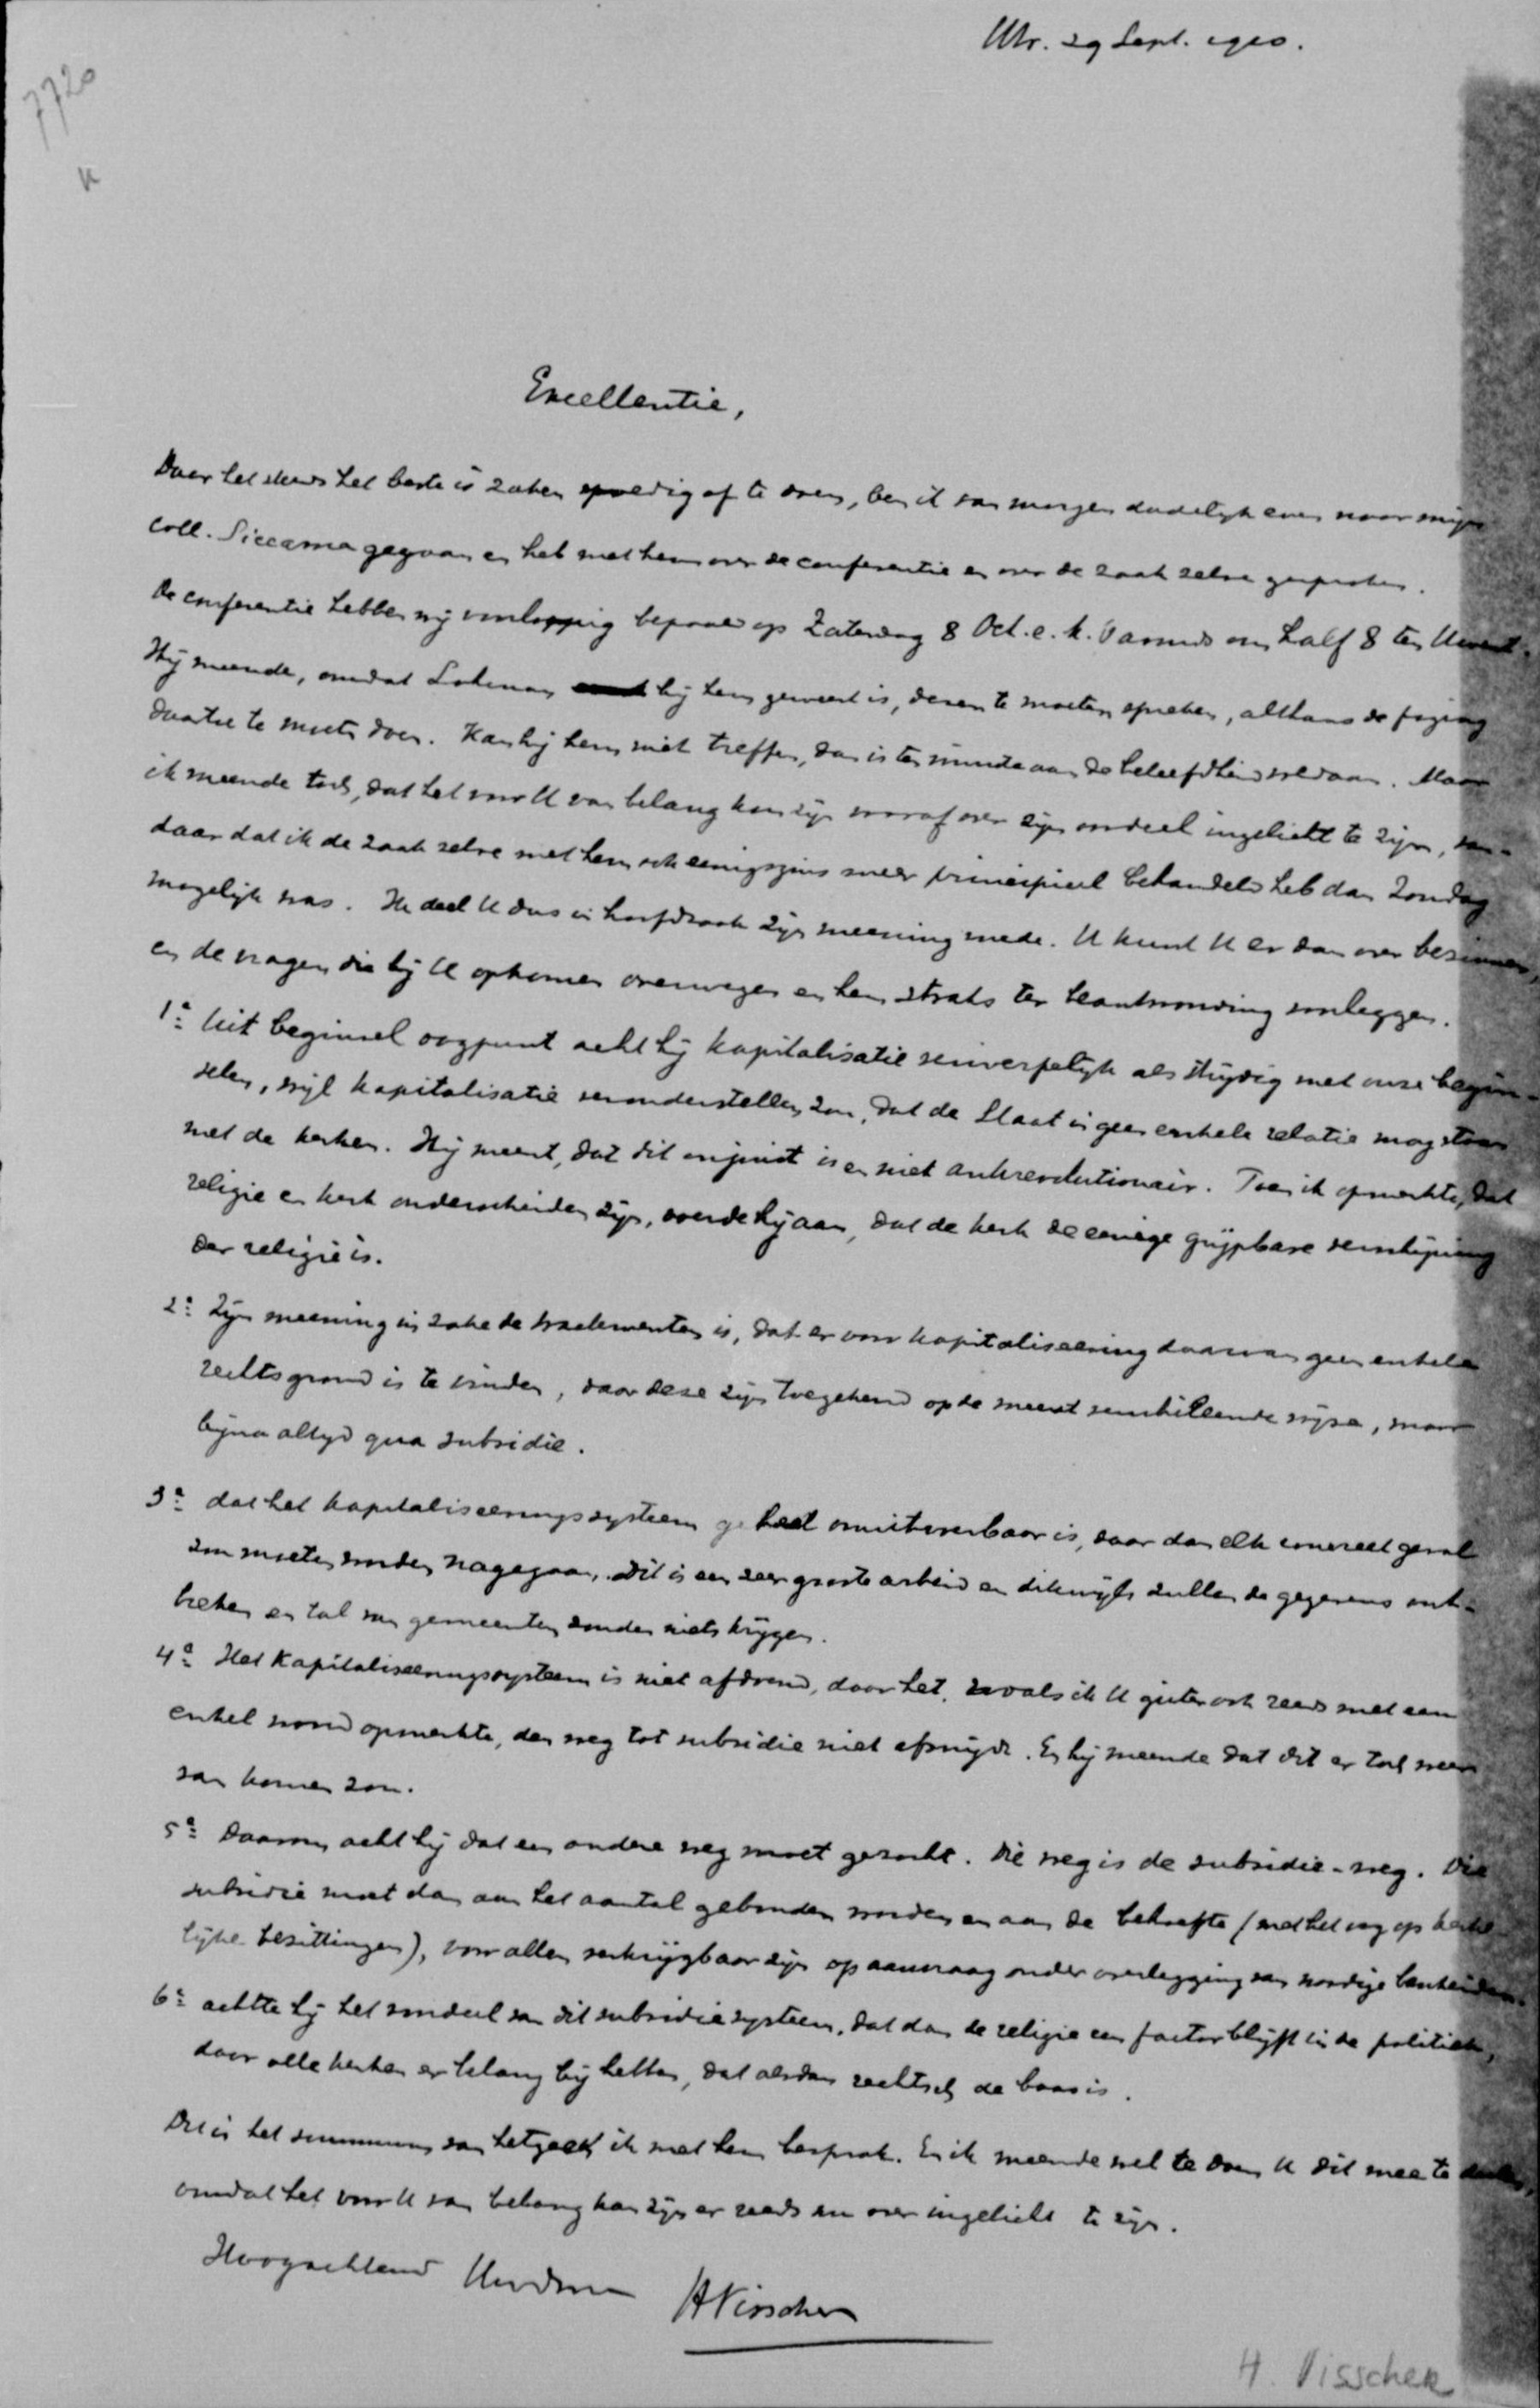 Utr. 29 Sept. 1910.
7720
K
Excellentie,
Daar het steeds het beste is zaken spoedig af te doen, ben ik van morgen dadelijk even naar mijn
coll. Siccama gegaan en heb met hem over de conferentie en over de zaak zelve gesproken.
De conferentie hebben wij voorloopig bepaald op Zaterdag 8 Oct. e. k. 's avonds om half 8 ten Uwent.
Hij meende, omdat Lohman bij hem geweest is, dezen te moeten spreken, althans de poging
daartoe te moeten doen. Kan hij hem niet treffen, dan is ten minste aan de beleefdheid voldaan. Maar
ik meende toch, dat het voor U van belang kon zijn vooraf over zijn oordeel ingelicht te zijn, van-
daar dat ik de zaak zelve met hem ook eenigszins meer principieel behandeld heb dan Zondag
mogelijk was. Ik deel U dus in hoofdzaak zijn meening mede. U kunt U er dan over bezinnen,
en de vragen die bij U opkomen overwegen en hem straks ter beantwoording voorleggen.
1º Uit beginsel oogpunt acht hij kapitalisatie verwerpelijk als strijdig met onze begin-
selen, wijl kapitalisatie veronderstellen zou, dat de Staat in geen enkele relatie mag staan
met de kerken. Hij meent, dat dit onjuist is en niet antirevolutionair. Toen ik opmerkte, dat
religie en kerk onderscheiden zijn, voerde hij aan, dat de kerk de eenige grijpbare
der religie is.
2º Zijn meening in zake de tractementen is, dat er voor kapitaliseering daarvan geen enkele
rechtsgrond is te vinden, daar deze zijn toegekend op de meest verschillende wijze, maar
bijna altijd qua subsidie.
3º dat het kapitaliseeringssysteem geheel onuitvoerbaar is, daar dan elk concreet geval
zou moeten worden nagegaan. Dit is een zeer groote arbeid en dikwijls zullen de gegevens ont-
breken en tal van gemeenten zouden niets krijgen.
4º Het Kapitaliseeringssysteem is niet afdoend, daar het, zooals ik U gister ook reeds met een
enkel woord opmerkte, den weg tot subsidie niet afsnijdt. En hij meende dat dit er toch weer
van komen zou.
5º Daarom acht hij dat een andere weg moet gezocht. Die weg is de subsidie-weg. Die
subsidie moet dan aan het aantal gebonden worden en aan de behoefte (met het oog op kerke-
lijke bezittingen), voor allen verkrijgbaar zijn op aanvraag onder overlegging van noodige bescheiden.
6º achtte hij het voordeel van dit subsidiesysteem, dat dan de religie een factor blijft in de politiek,
daar alle kerken er belang bij hebben, dat alsdan rechtsch de baas is.
Dit is het summum van hetgeen ik met hem besprak. En ik meende wel te doen U dit mee te deelen,
omdat het voor U van belang kan zijn er reeds nu over ingelicht te zijn.
Hoogachtend Uwdw
HVisscher
H. Visscher